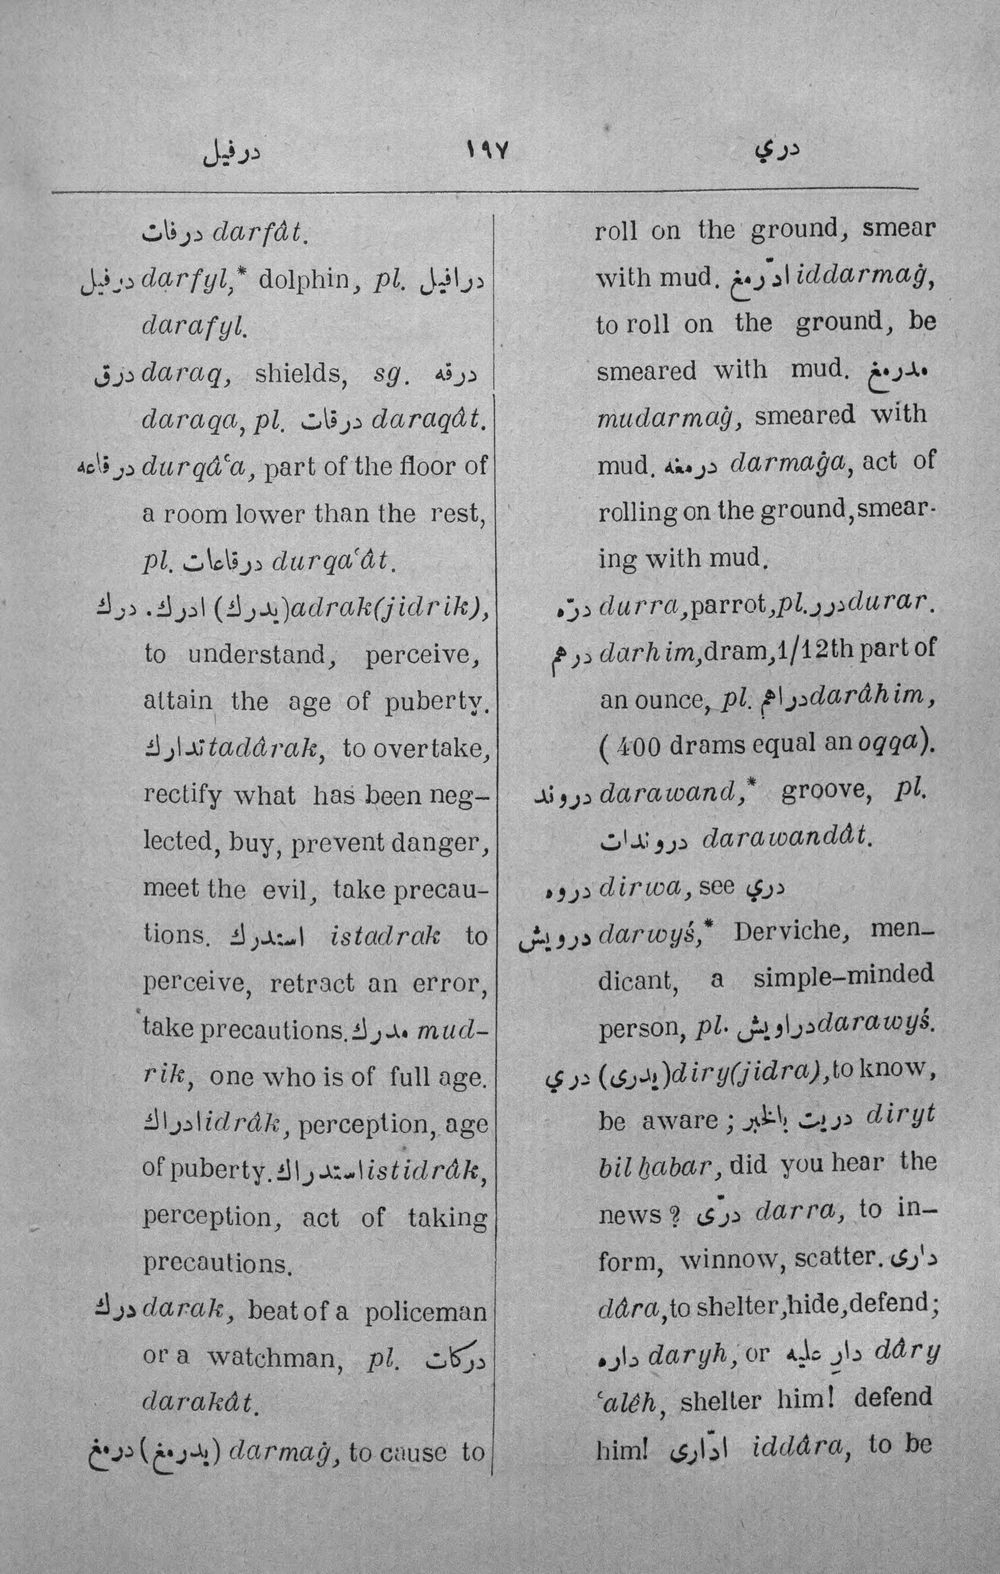 درفيل ١٩٧ دري
درفات darfât.
درفيل darfyl,* dolphin, pl. درافيل
darafyl.
درق daraq, shields, sg. درقه
daraqa, pl. درقات daraqât.
درقاعه durqâʿa, part of the floor of
a room lower than the rest,
pl. درقاعات durqaʿât.
درك . ادرك (يدرك) adrak(jidrik),
to understand, perceive,
attain the age of puberty.
تدارك tadârak, to overtake,
rectify what has been neg-
lected, buy, prevent danger,
meet the evil, take precau-
tions. استدرك istadrak to
perceive, retract an error,
take precautions. مدرك mud-
rik, one who is of full age.
ادراك idrâk, perception, age
of puberty. استدراك istidrâk,
perception, act of taking
precautions.
درك darak, beat of a policeman
or a watchman, pl. دركات
darakât.
درمغ (يدرمغ) darmaġ, to cause to
roll on the ground, smear
with mud. ادّرمغ iddarmaġ,
to roll on the ground, be
smeared with mud. مدرمغ
mudarmaġ, smeared with
mud. درمغه darmaġa, act of
rolling on the ground, smear-
ing with mud.
درّه durra, parrot, pl. درر durar.
درهم darhim, dram, 1/12th part of
an ounce, pl. دراهم darâhim,
( 400 drams equal an oqqa).
دروند darawand,* groove, pl.
دروندات darawandât.
دروه dirwa, see دري
درويش darwyś,* Derviche, men-
dicant, a simple-minded
person, pl. دراويش darawyś.
دري (يدرى) diry(jidra), to know,
be aware ; دريت بالخبر diryt
bil ḫabar, did you hear the
news ? درّى darra, to in-
form, winnow, scatter. دارى
dâra, to shelter, hide, defend;
داره daryh, or دارِ عليه dâry
ʿalêh, shelter him! defend
him! ادّارى iddâra, to be